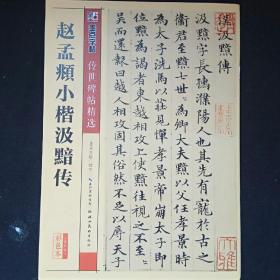 墨点字帖
传世碑帖精选
赵孟頫小楷汲黯传
彩色本
漢汲黯傳
汲黯字長孺濮陽人也其先有寵於古之
衛君至黯七世世為卿大夫黯以父任孝景時
為太子洗馬以莊見憚孝景帝崩太子即
位黯為謁者東越相攻上使黯往視之不至
吳而還報曰越人相攻固其俗然不足以辱天子